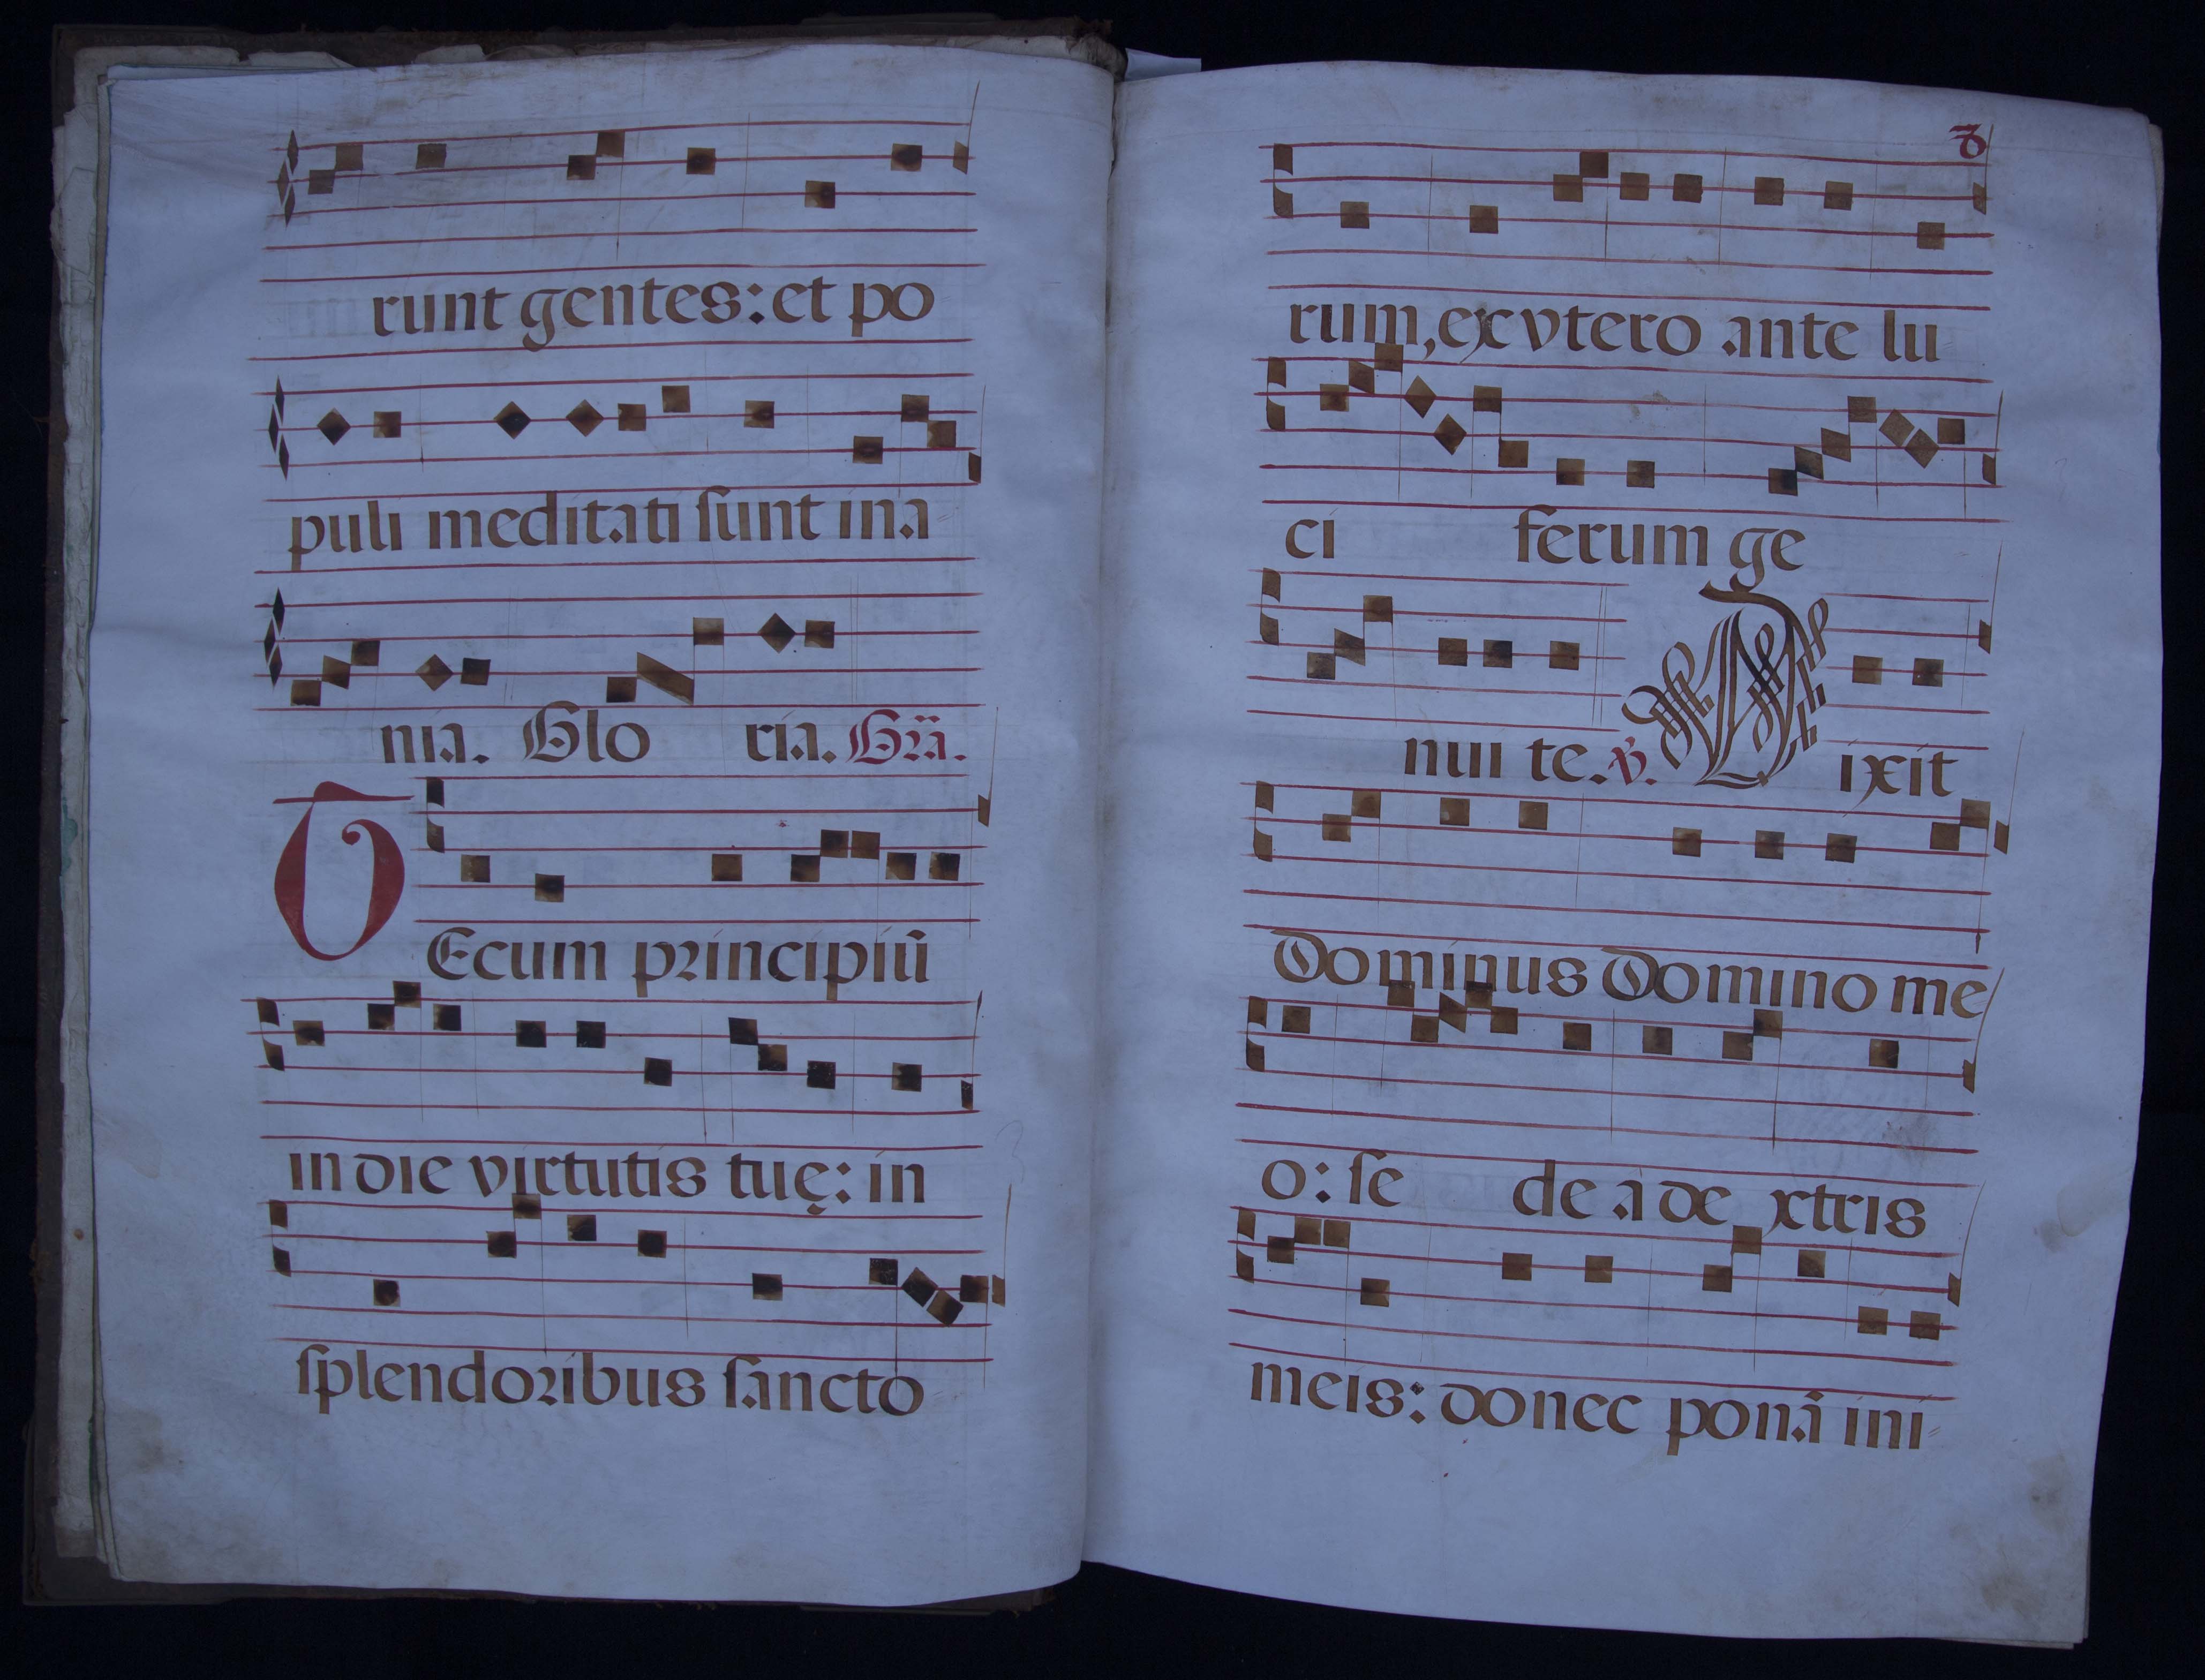 runt gentes: et po
puli meditati ſunt ina
nia. Glo ria. Gr̃a.
TEcum principiũ
in die virtutis tuę: in
ſplendoribus ſancto
rum, ex vtero ante lu
ci ferum ge
nui te. ℣. Dixit
Dominus Domino me
o: ſe de a de xtris
meis: donec ponã ini